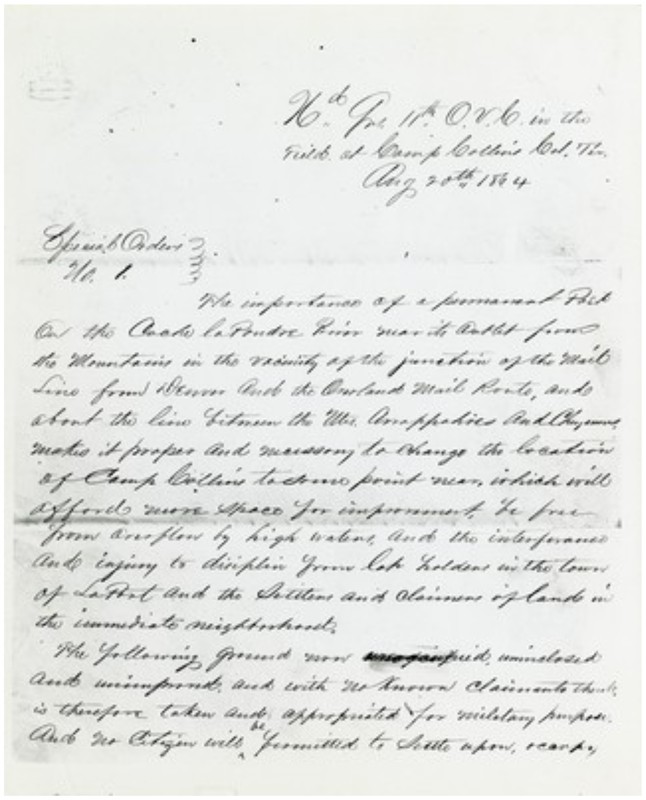 Hd. Qrs 11th O.V.C. in the
Field at Camp Collins Col. Ter.
Aug 20th 1864
Special Orders
No. 1.
The importance of a permanent Post
On the Cache la Poudre River near its outlet from
the Mountains in the vicinity of the junction of the Mail
Line from Denver And the Overland Mail Route, and
about the line between the Utes. Arrappahoes And Cheyennes
makes it proper and necessary to change the location
of Camp Collins to some point near, which will
afford more space for improvment, be free
from overflow by high waters, and the interferance
And injury to disiplin from lot holders in the town
of LaPort And the Settlers and claimers of land in
the immediate neighborhood.
The following ground now uninclosed
And unimproved, and with no known claimants
is therefore taken and appropriated for military purpose.
And no Citizen will be permitted to Settle upon, occupy